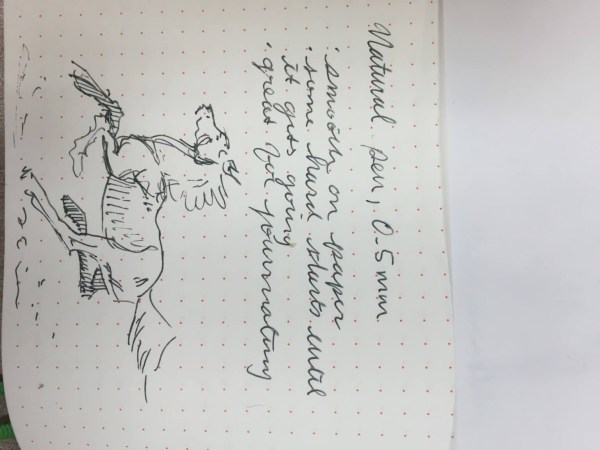 Natural pen, 0.5mm
· smooth on paper
· some hard starts until
it gets going
· great for journaling